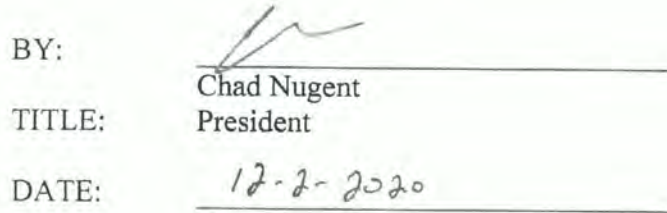 BY:
Chad Nugent
TITLE: President
DATE: 12-2-2020